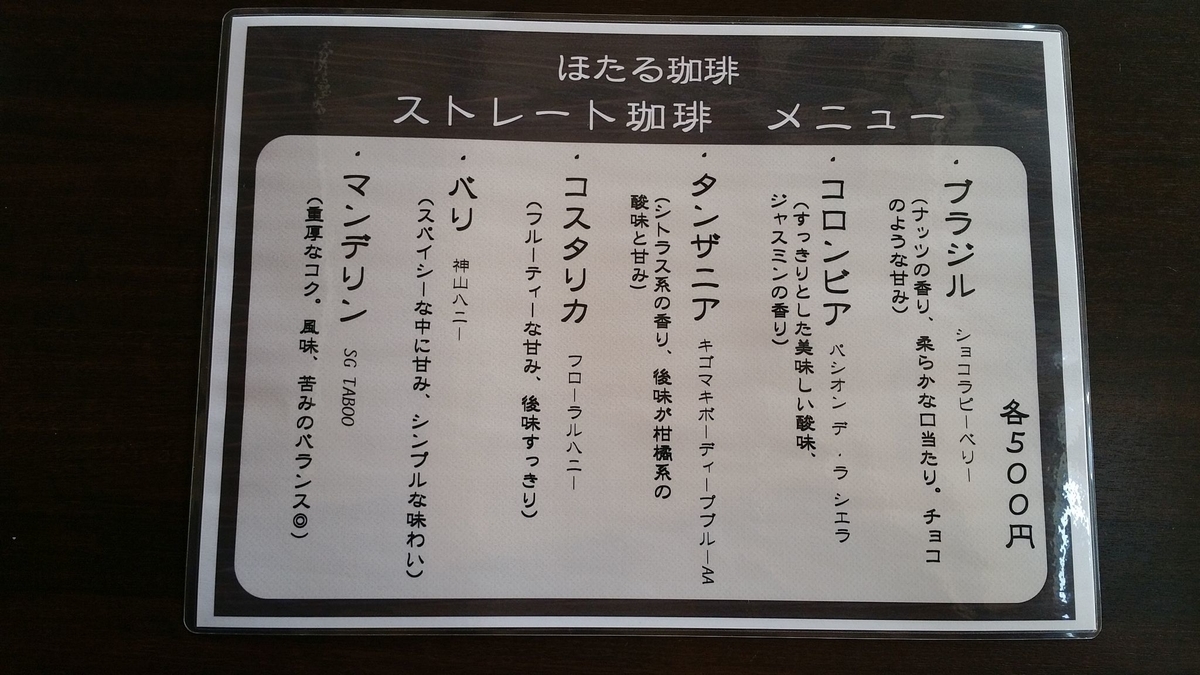 ほたる珈琲
ストレート珈琲　メニュー
各５００円
・ブラジル　ショコラピーベリー
（ナッツの香り、柔らかな口当たり。チョコ
のような甘み）
・コロンビア　パシオン デ・ラ シエラ
（すっきりとした美味しい酸味、
ジャスミンの香り）
・タンザニア　キゴマキボーディープブルーAA
（シトラス系の香り、後味が柑橘系の
酸味と甘み）
・コスタリカ　フローラルハニー
（フルーティーな甘み、後味すっきり）
・バリ　神山ハニー
（スパイシーな中に甘み、シンプルな味わい）
・マンデリン　SG TABOO
（重厚なコク。風味、苦みのバランス◎）